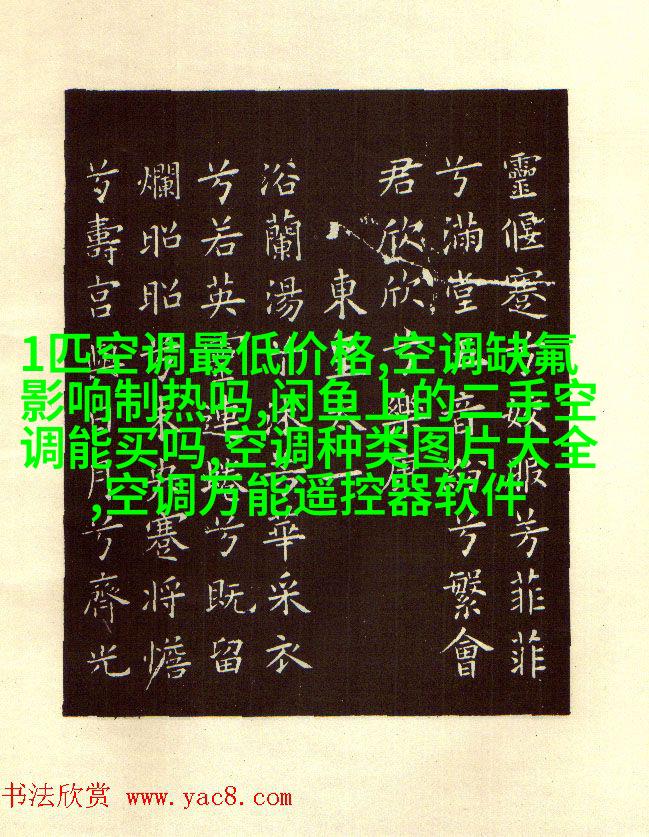 靈偃蹇兮姣服芳菲菲
兮滿堂五音紛兮繁會
君欣欣兮樂康
東皇太一
浴蘭湯兮沐芳華采衣
兮若英靈連蜷兮既留
爛昭昭兮未央蹇將憺
兮壽宮與日月兮齊光
1匹空调最低价格,空调缺氟
影响制热吗,闲鱼上的二手空
调能买吗,空调种类图片大全
,空调万能遥控器软件
书法欣赏 www.yac8.com